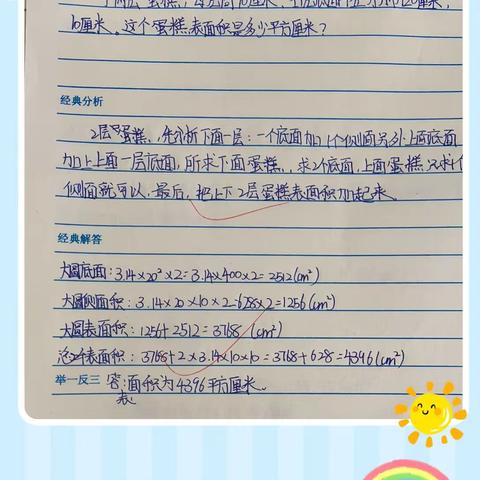 10厘米。这个蛋糕表面积是多少平方厘米?
经典分析
2层蛋糕,先分析下面一层:一个底面加1个侧面另外上面底面
加上上面一层底面,所求下面蛋糕,求2个底面,上面蛋糕只求1个
侧面就可以,最后,把上下2层蛋糕表面积加起来。
经典解答
大圆底面:3.14×20²×2=3.14×400×2=2512(cm²)
大圆侧面积:3.14×20×10×2=628×2=1256(cm²)
大圆表面积:1256+2512=3768(cm²)
总2个表面积:3768+2×3.14×10×10=3768+628=4396(cm²)
举一反三 答:表面积为4396平方厘米。